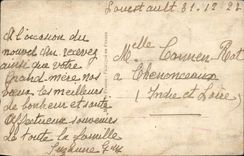 31-12-27
à l'occasion du
nouvel an recevez
ainsi que votre
grand mère nos
voeux les meilleurs
de bonheur et santé
Affectueux souvenirs
de toute la famille
Suzanne
Melle
à Chenonceaux
(Indre et Loire)